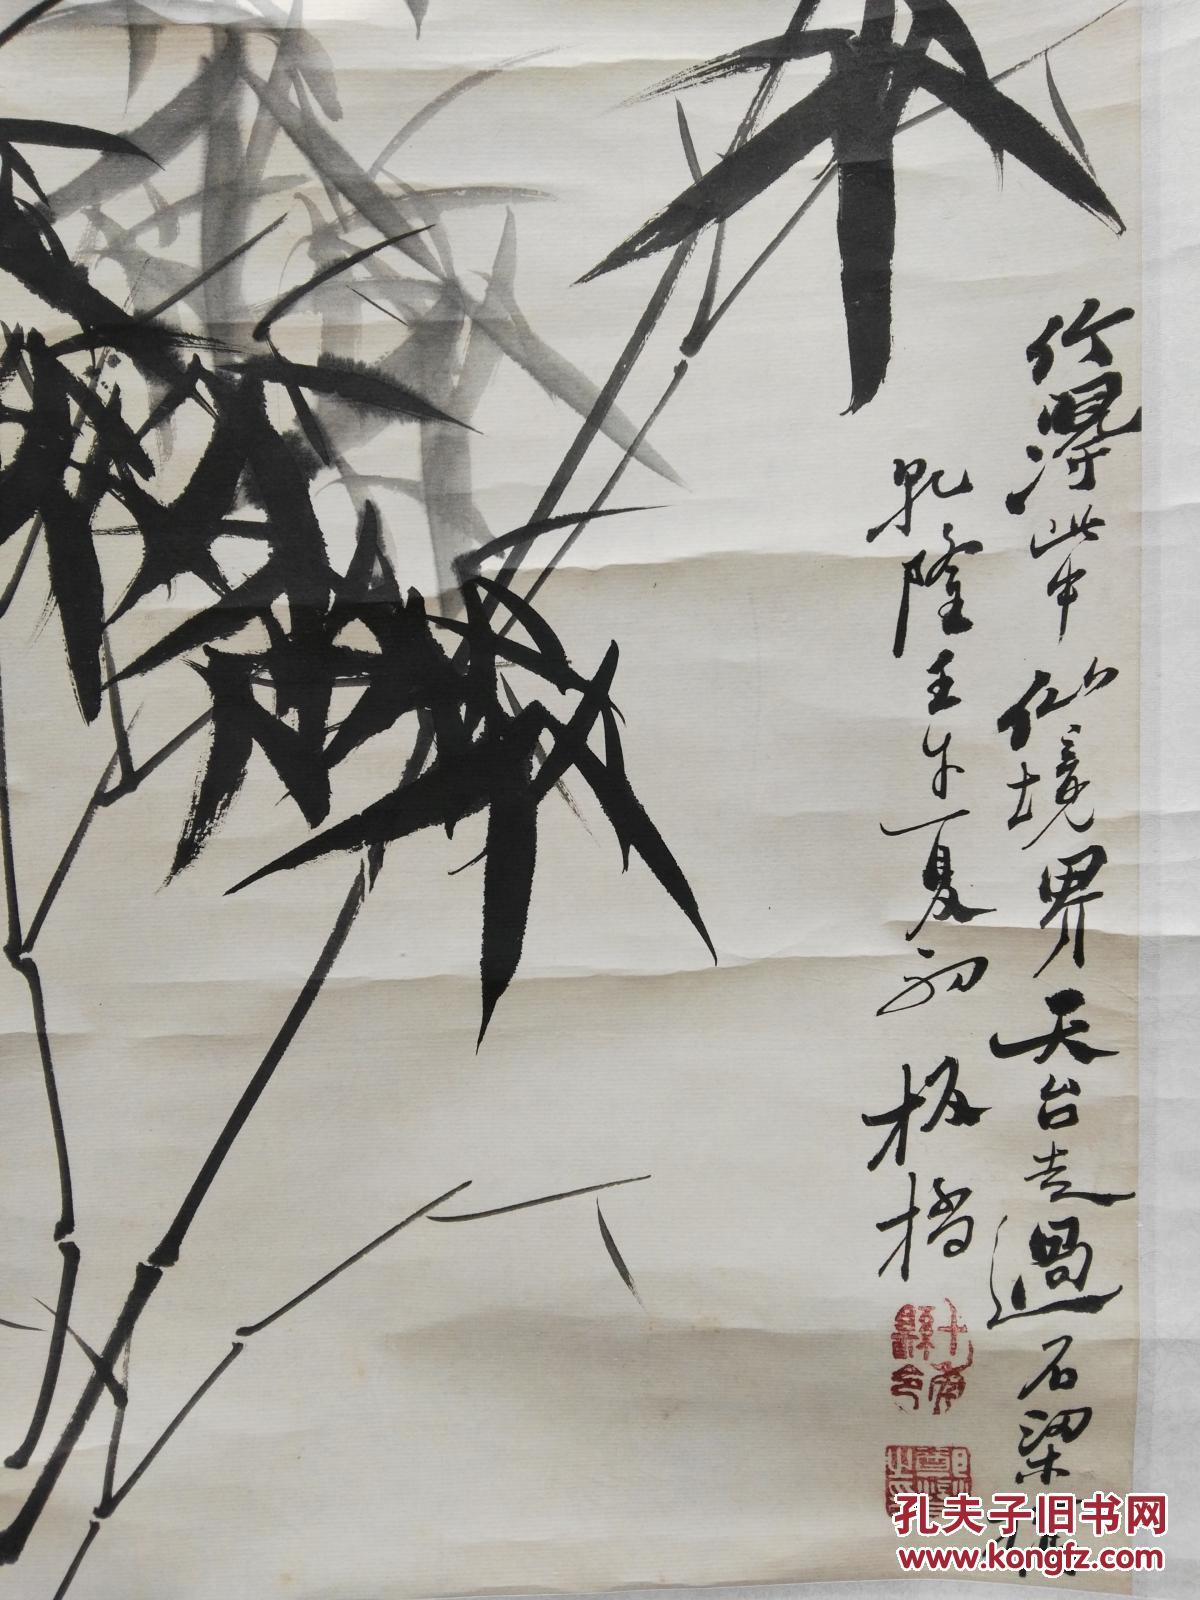 竹得此中仙境界天台走過石梁橋
乾隆壬午夏初 板橋
孔夫子旧书网
www.kongfz.com